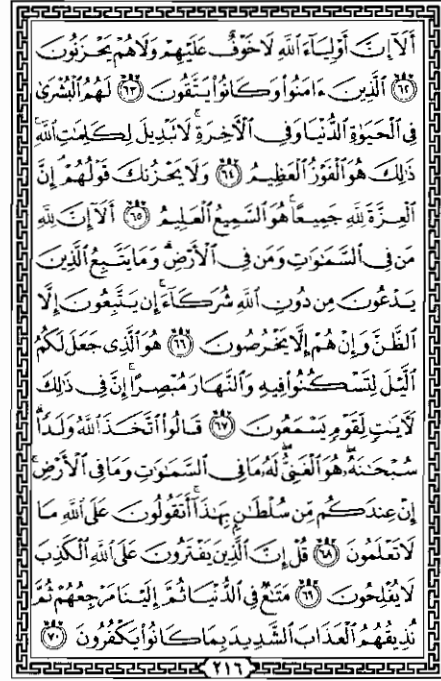 أَلَآ إِنَّ أَوْلِيَآءَ ٱللَّهِ لَا خَوْفٌ عَلَيْهِمْ وَلَا هُمْ يَحْزَنُونَ
۝٦٢ ٱلَّذِينَ ءَامَنُوا۟ وَكَانُوا۟ يَتَّقُونَ ۝٦٣ لَهُمُ ٱلْبُشْرَىٰ
فِى ٱلْحَيَوٰةِ ٱلدُّنْيَا وَفِى ٱلْءَاخِرَةِ ۚ لَا تَبْدِيلَ لِكَلِمَٰتِ ٱللَّهِ ۚ
ذَٰلِكَ هُوَ ٱلْفَوْزُ ٱلْعَظِيمُ ۝٦٤ وَلَا يَحْزُنكَ قَوْلُهُمْ ۘ إِنَّ
ٱلْعِزَّةَ لِلَّهِ جَمِيعًا ۚ هُوَ ٱلسَّمِيعُ ٱلْعَلِيمُ ۝٦٥ أَلَآ إِنَّ لِلَّهِ
مَن فِى ٱلسَّمَٰوَٰتِ وَمَن فِى ٱلْأَرْضِ ۗ وَمَا يَتَّبِعُ ٱلَّذِينَ
يَدْعُونَ مِن دُونِ ٱللَّهِ شُرَكَآءَ ۚ إِن يَتَّبِعُونَ إِلَّا
ٱلظَّنَّ وَإِنْ هُمْ إِلَّا يَخْرُصُونَ ۝٦٦ هُوَ ٱلَّذِى جَعَلَ لَكُمُ
ٱلَّيْلَ لِتَسْكُنُوا۟ فِيهِ وَٱلنَّهَارَ مُبْصِرًا ۚ إِنَّ فِى ذَٰلِكَ
لَءَايَٰتٍ لِّقَوْمٍ يَسْمَعُونَ ۝٦٧ قَالُوا۟ ٱتَّخَذَ ٱللَّهُ وَلَدًا ۗ
سُبْحَٰنَهُۥ ۖ هُوَ ٱلْغَنِىُّ ۖ لَهُۥ مَا فِى ٱلسَّمَٰوَٰتِ وَمَا فِى ٱلْأَرْضِ ۚ
إِنْ عِندَكُم مِّن سُلْطَٰنٍۭ بِهَٰذَآ ۚ أَتَقُولُونَ عَلَى ٱللَّهِ مَا
لَا تَعْلَمُونَ ۝٦٨ قُلْ إِنَّ ٱلَّذِينَ يَفْتَرُونَ عَلَى ٱللَّهِ ٱلْكَذِبَ
لَا يُفْلِحُونَ ۝٦٩ مَتَٰعٌ فِى ٱلدُّنْيَا ثُمَّ إِلَيْنَا مَرْجِعُهُمْ ثُمَّ
نُذِيقُهُمُ ٱلْعَذَابَ ٱلشَّدِيدَ بِمَا كَانُوا۟ يَكْفُرُونَ ۝٧٠
٢١٦